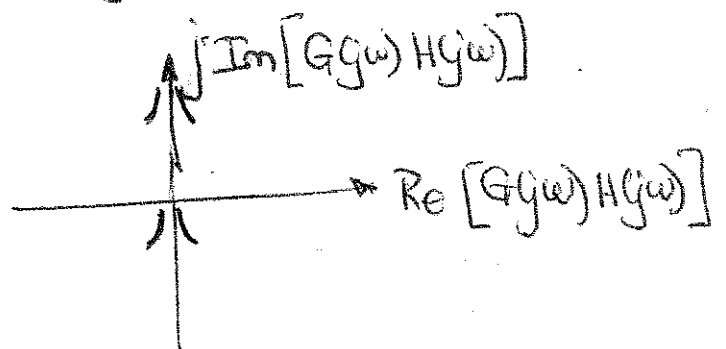 j Im[G(jω) H(jω)]
Re [G(jω) H(jω)]